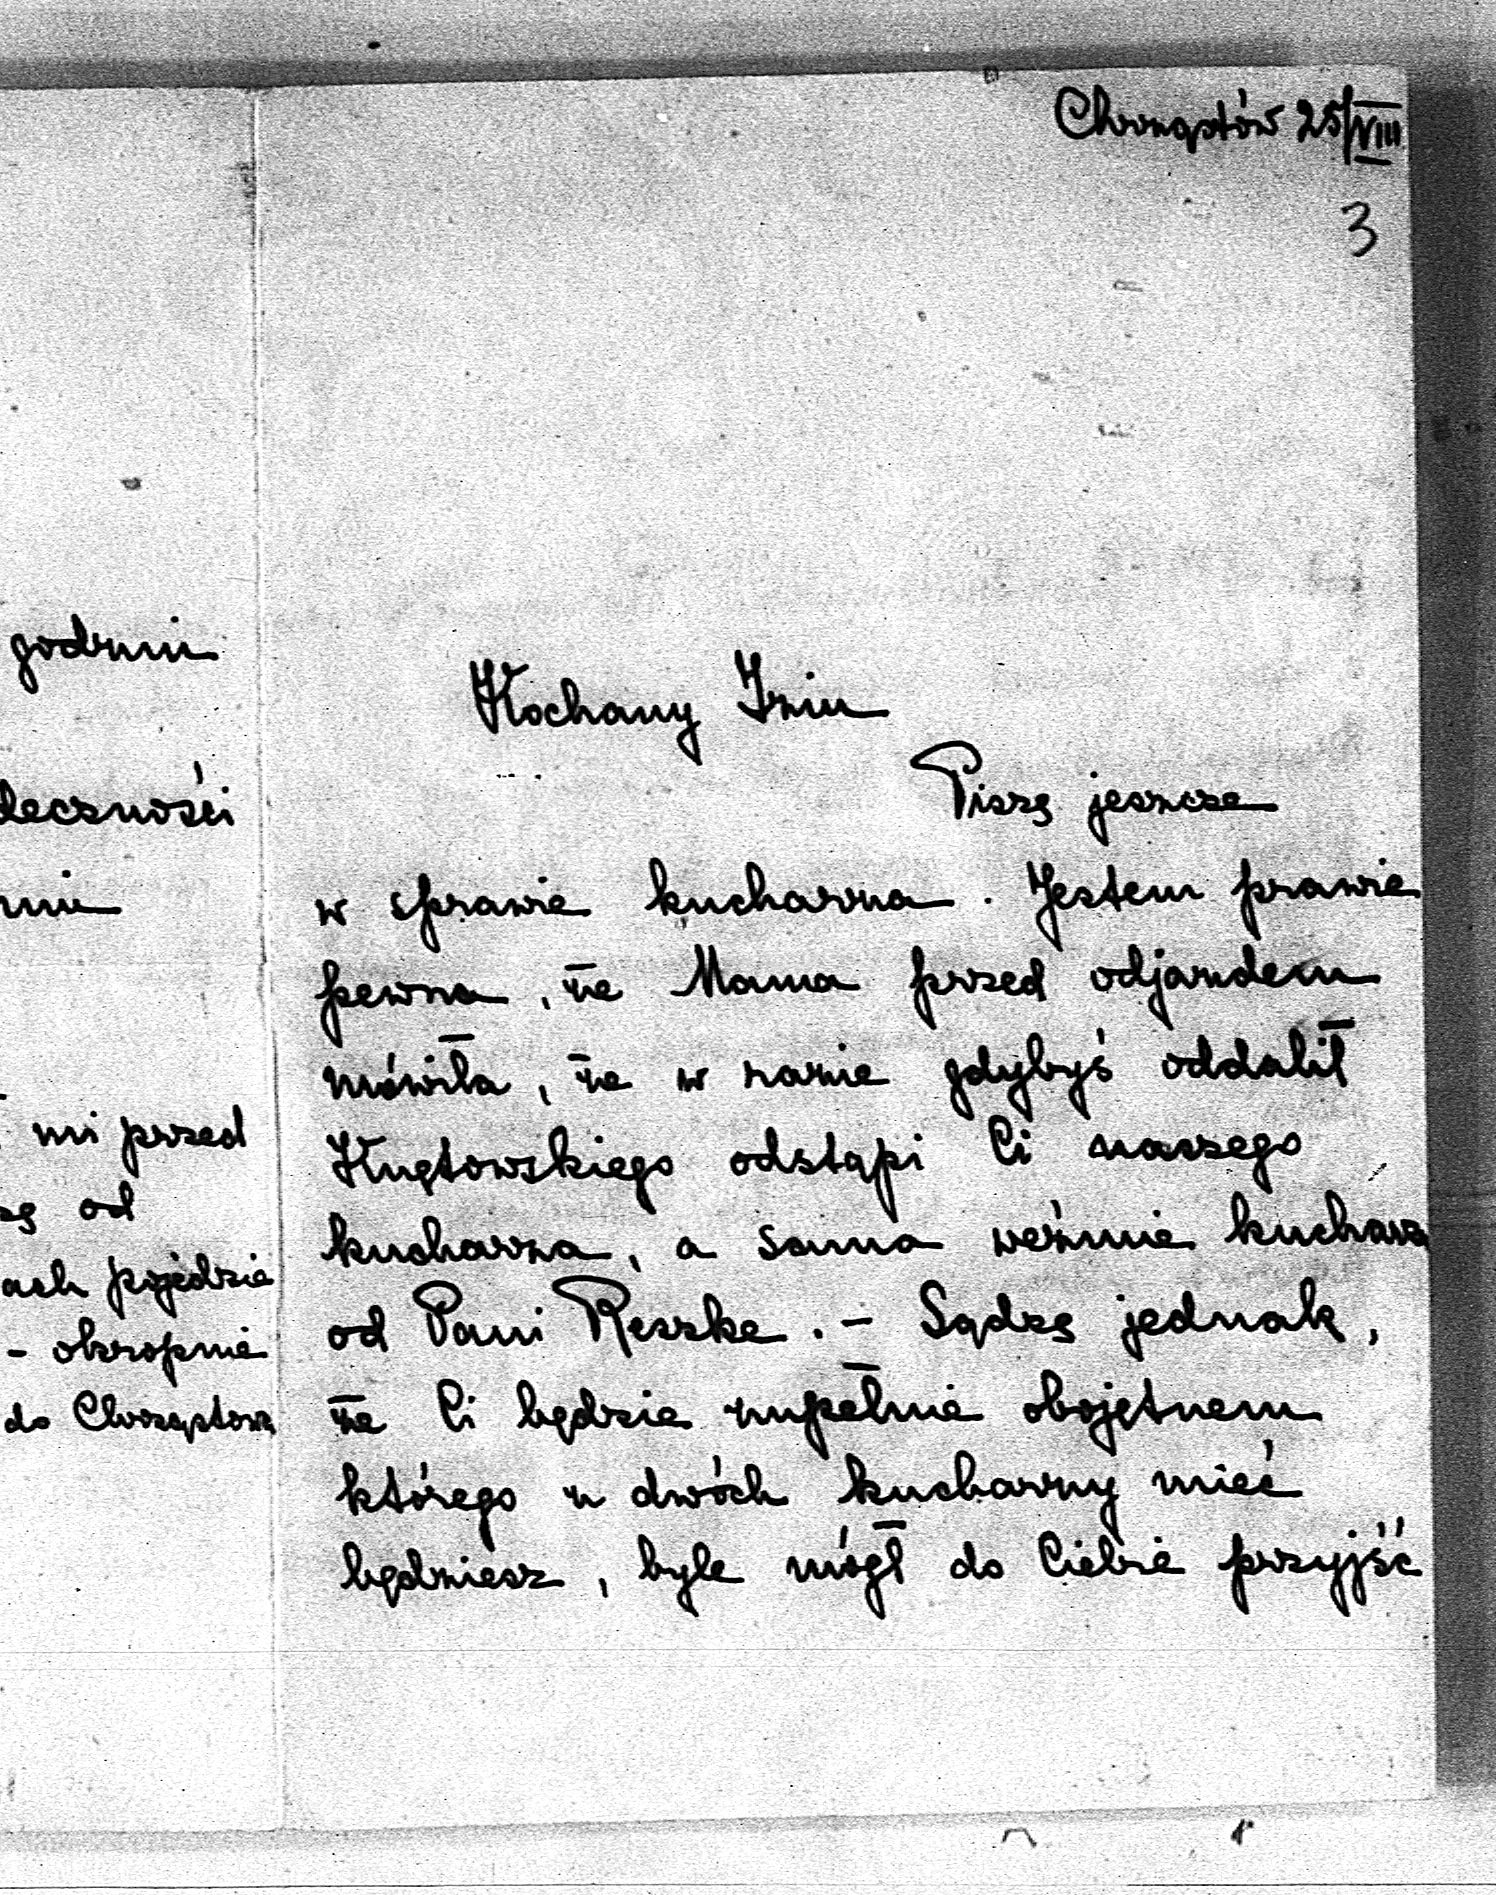 Chrząstów 25/VIII
3
Kochany Iziu
Piszę jeszcze
w sprawie kucharza. Jestem prawie
pewna, że Mama przed odjazdem
mówiła, że w razie gdybyś oddalił
odstąpi Ci naszego
kucharza, a sama weźmie kucharza
od Pani Reszke. – Sądzę jednak,
że Ci będzie zupełnie obojętnem
którego z dwóch kucharzy mieć
będziesz, byle mógł do Ciebie przyjść
godzin
mi przed
od
pojedzie
– okropnie
do Chrząstowa